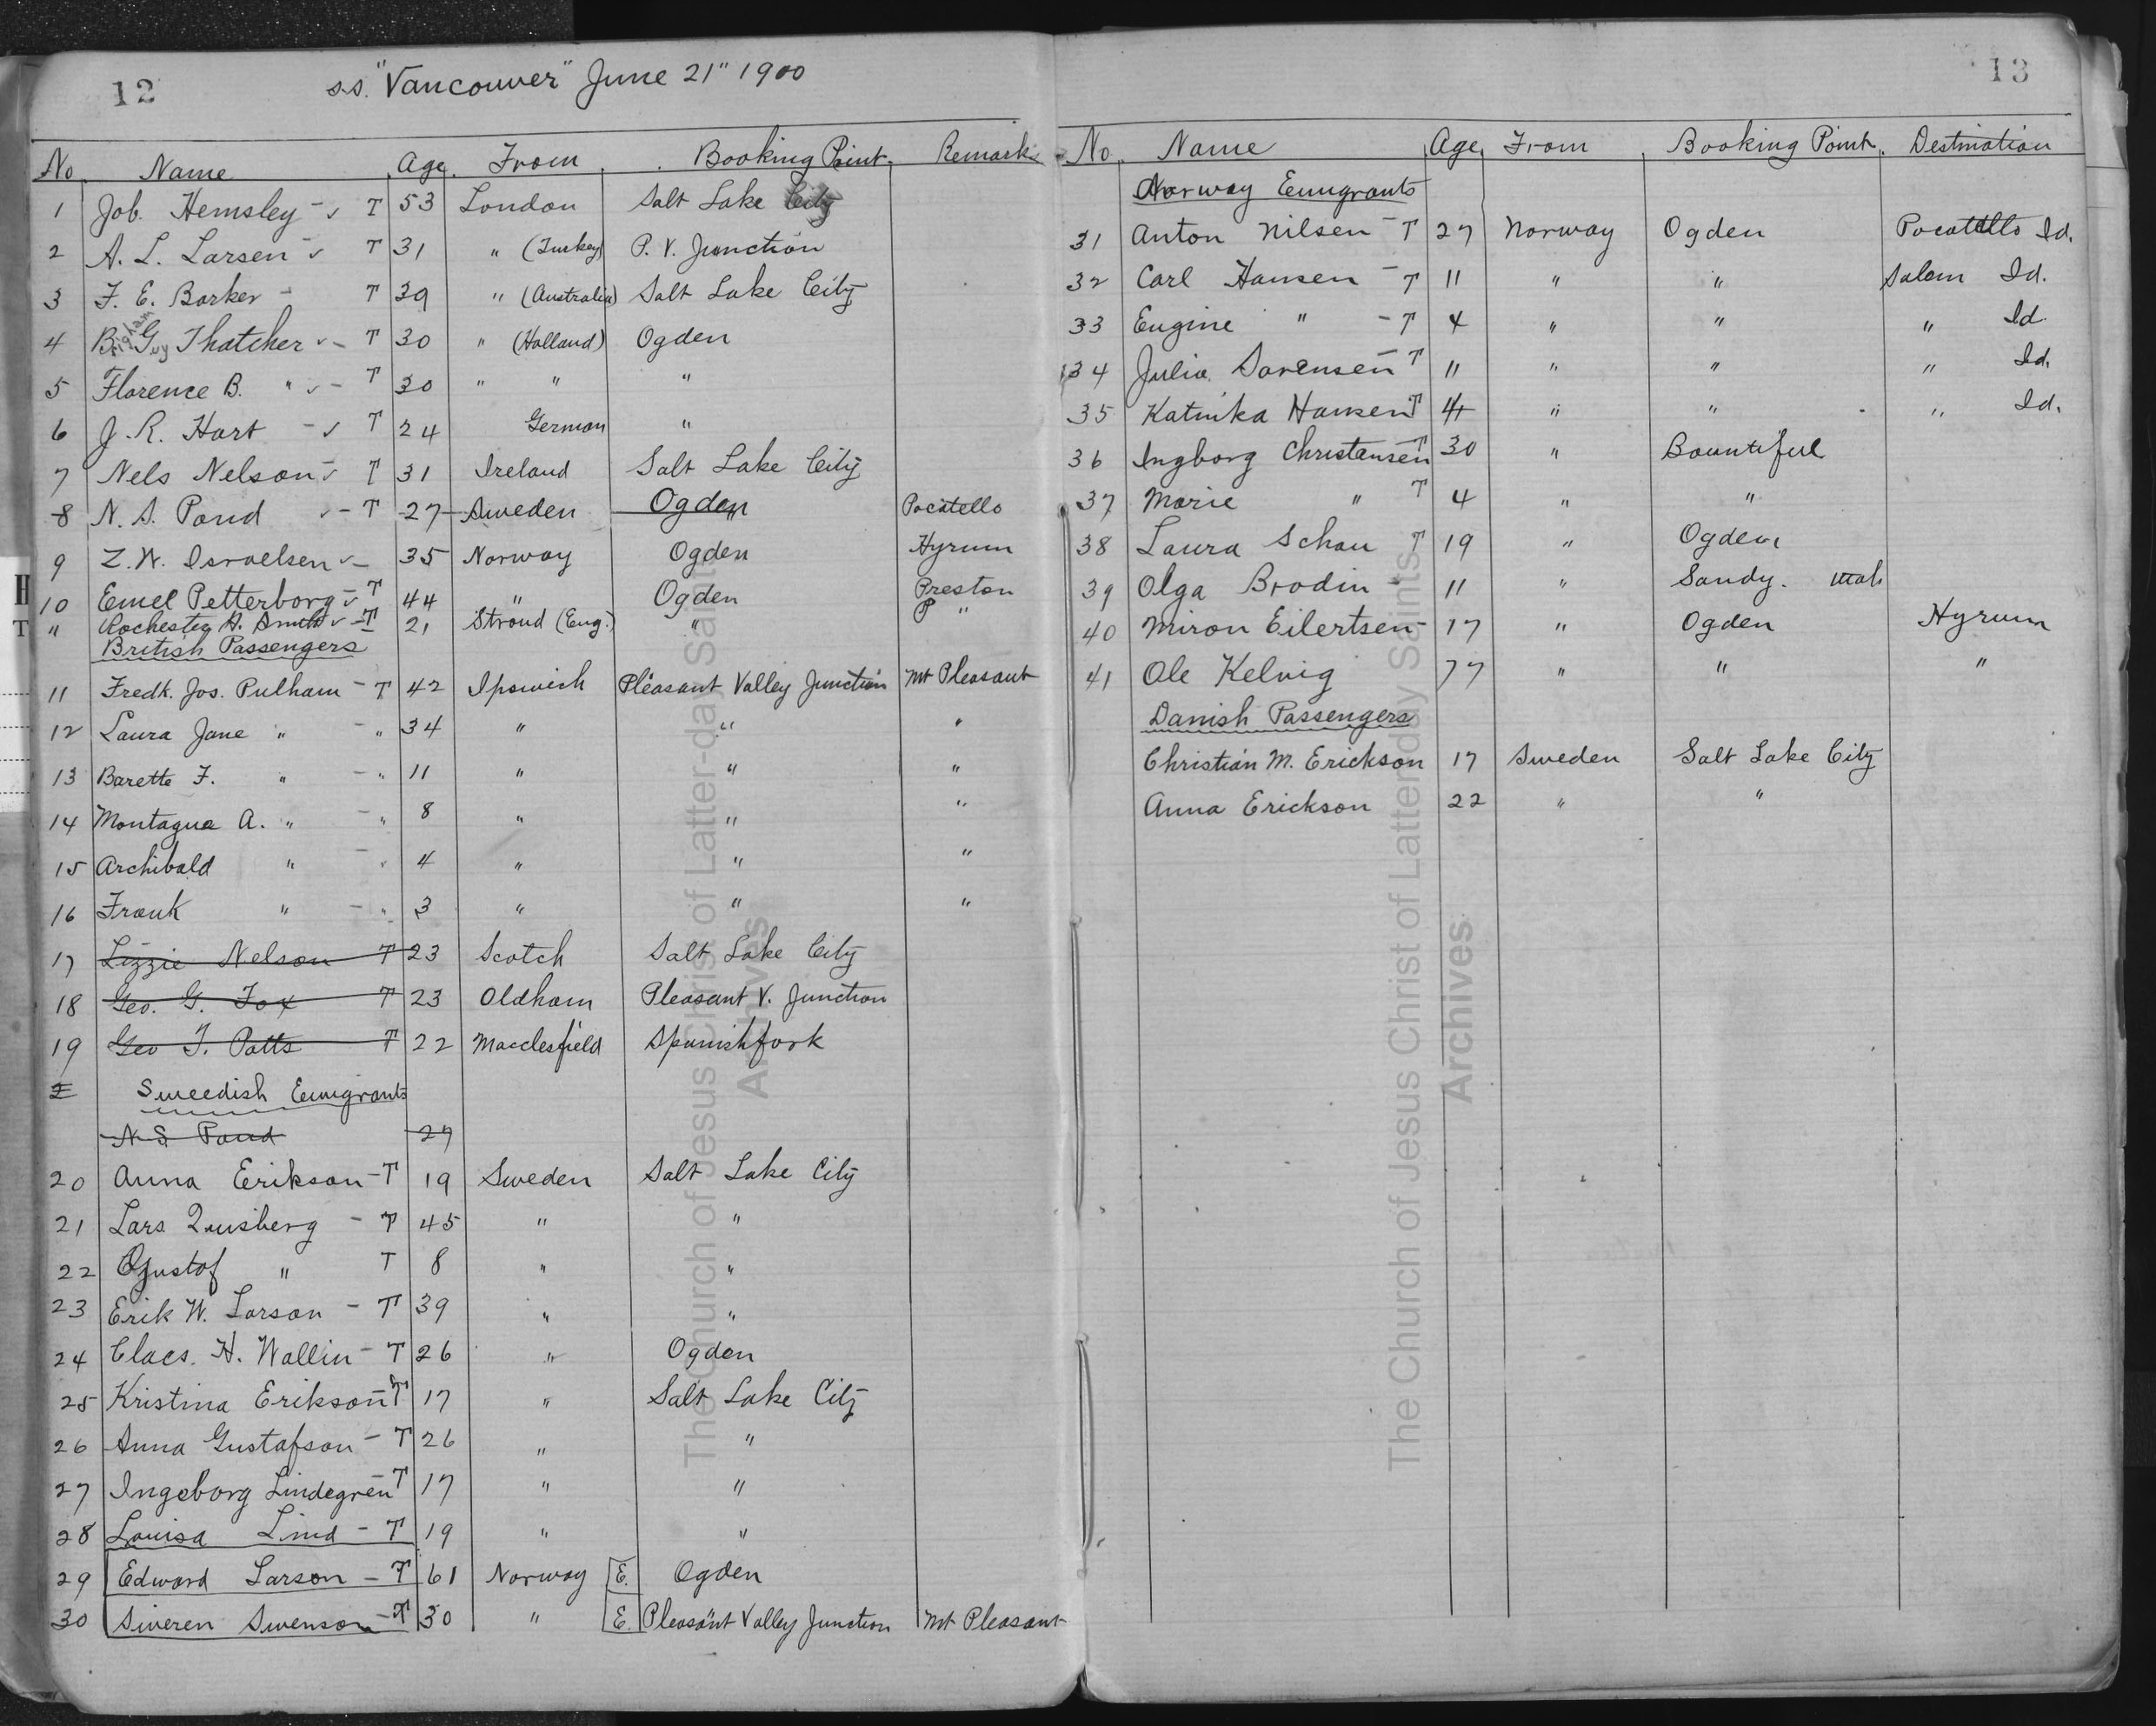 12
s.s. "Vancouver" June 21" 1900
No. Name Age. From Booking Point. Remarks
1 Job. Hemsley - v T 53 London Salt Lake City
2 A. L. Larsen - v T 31 " (Turkey) P. V. Junction
3 F. E. Barker - T 39 " (Australia) Salt Lake City
4 B. G. Thatcher v - T 30 " (Holland) Ogden
5 Florence B. " v - T 30 " " "
6 J. R. Hart - v T 24 German "
7 Nels Nelson - v T 31 Ireland Salt Lake City
8 N. S. Pond v - T 27 Sweden Ogden Pocatello
9 Z. W. Israelsen v - 35 Norway Ogden Hyrum
10 Emel Petterborg - v T 44 " Ogden Preston
" Rochester A. Smith v - T 21 Stroud (Eng.) " P "
British Passengers
11 Fredk. Jos. Pulham - T 42 Ipswich Pleasant Valley Junction Mt Pleasant
12 Laura Jane " - " 34 " " "
13 Barette F. " - " 11 " " "
14 Montague A. " - " 8 " " "
15 Archibald " - " 4 " " "
16 Frank " - " 3 " " "
17 Lizzie Nelson T 23 Scotch Salt Lake City
18 Geo. G. Fox T 23 Oldham Pleasant V. Junction
19 Geo T. Potts T 22 Macclesfield Spanishfork
Sweedish Emigrants
N. S. Pond 27
20 Anna Erikson - T 19 Sweden Salt Lake City
21 Lars - T 45 " "
22 Gustof " T 8 " "
23 Erik W. Larson - T 39 " "
24 Claes. H. Wallin - T 26 " Ogden
25 Kristina Erikson - T 17 " Salt Lake City
26 Anna Gustafson - T 26 " "
27 Ingeborg Lindegren - T 17 " "
28 Louisa Lind - T 19 " "
29 Edward Larson - T 61 Norway E. Ogden
30 Siveren Swenson - T 30 " E. Pleasant Valley Junction Mt Pleasant
13
No. Name Age. From Booking Point. Destination
Norway Emigrants
31 Anton Nilsen - T 27 Norway Ogden Pocatello Id.
32 Carl Hansen - T 11 " " Salem Id.
33 Eugine " - T 4 " " " Id.
34 Julia Sorensen - T 11 " " " Id.
35 Katinka Hansen T 4 " " " Id.
36 Ingborg Christensen T 30 " Bountiful
37 Marie " T 4 " "
38 Laura Schou T 19 " Ogden
39 Olga Brodin - 11 " Sandy. Utah
40 Miron Eilertsen - 17 " Ogden Hyrum
41 Ole Kelvig 77 " " "
Danish Passengers
Christian M. Erickson 17 Sweden Salt Lake City
Anna Erickson 22 " "
The Church of Jesus Christ of Latter-day Saints
Archives
The Church of Jesus Christ of Latter-day Saints
Archives